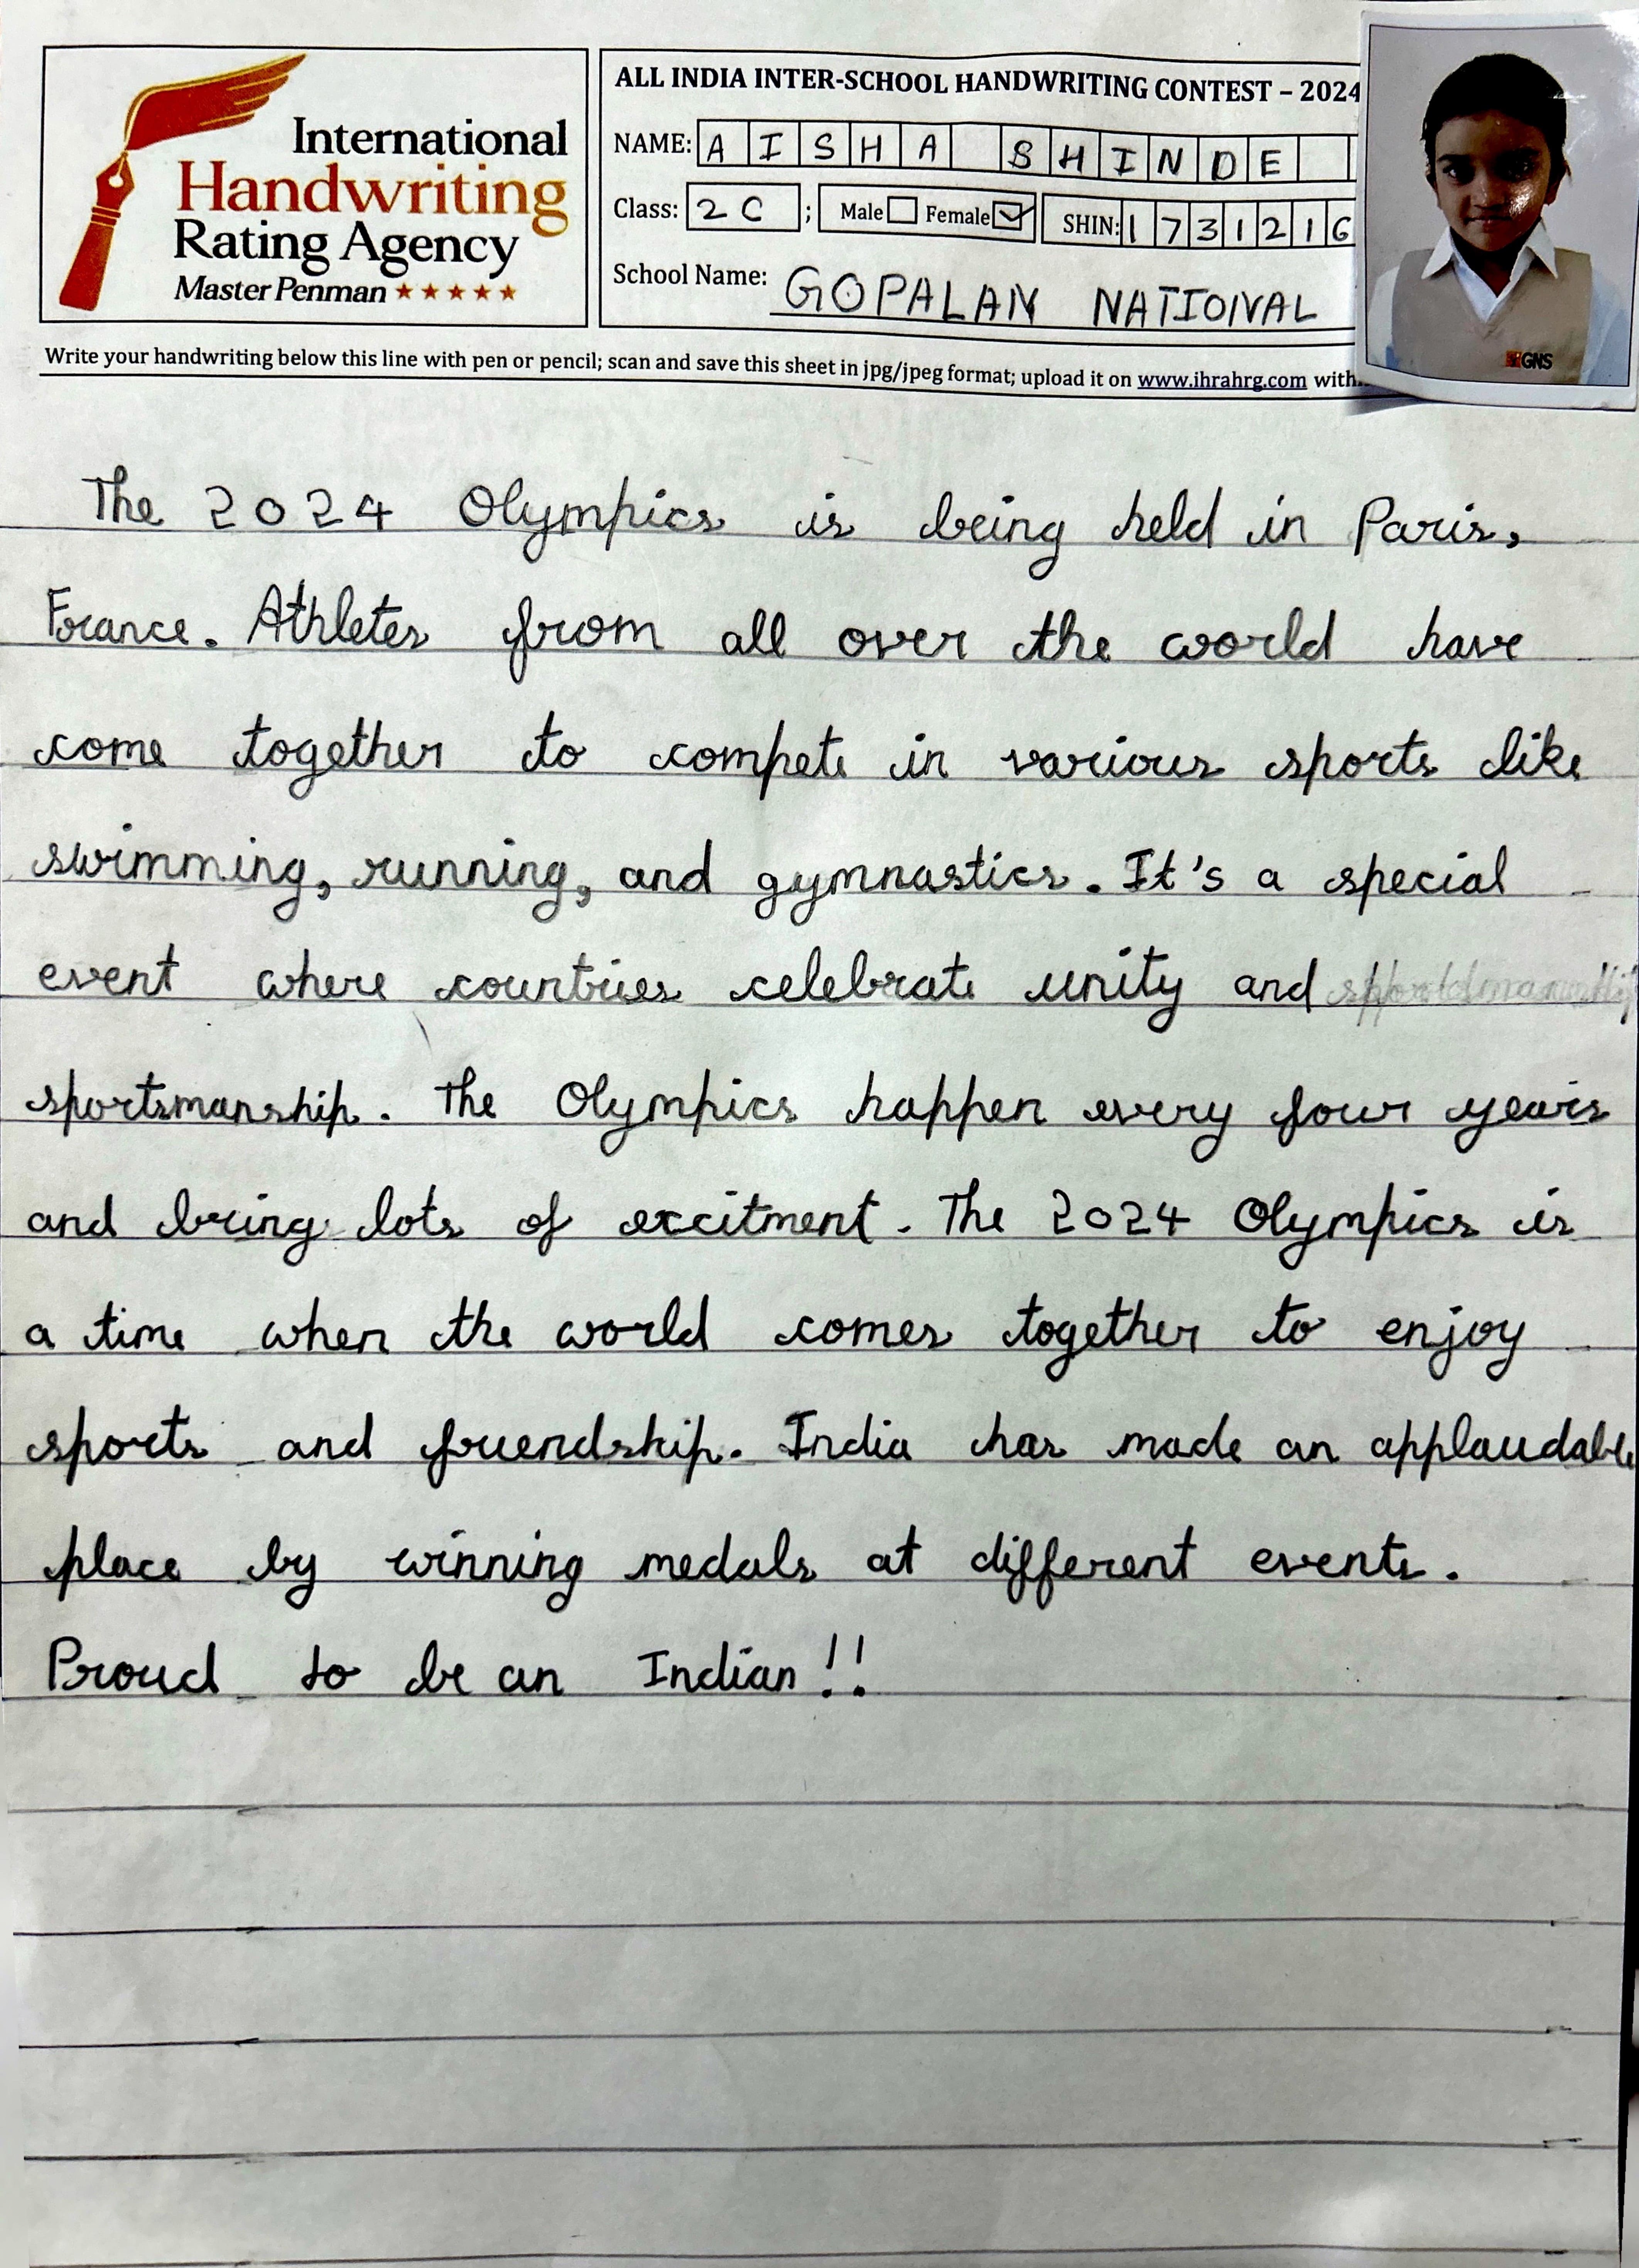 International
Handwriting
Rating Agency
Master Penman
ALL INDIA INTER-SCHOOL HANDWRITING CONTEST – 2024
NAME: AISHA SHINDE
Class: 2 C ; Male Female SHIN: 1731216
School Name: GOPALAN NATIONAL
GNS
Write your handwriting below this line with pen or pencil; scan and save this sheet in jpg/jpeg format; upload it on www.ihrahrg.com with
The 2024 Olympics is being held in Paris,
France. Athletes from all over the world have
come together to compete in various sports like
swimming, running, and gymnastics. It's a special
event where countries celebrate unity and
sportsmanship. The Olympics happen every four years
and bring lots of excitment. The 2024 Olympics is
a time when the world comes together to enjoy
sports and friendship. India has made an applaudable
place by winning medals at different events.
Proud to be an Indian!!